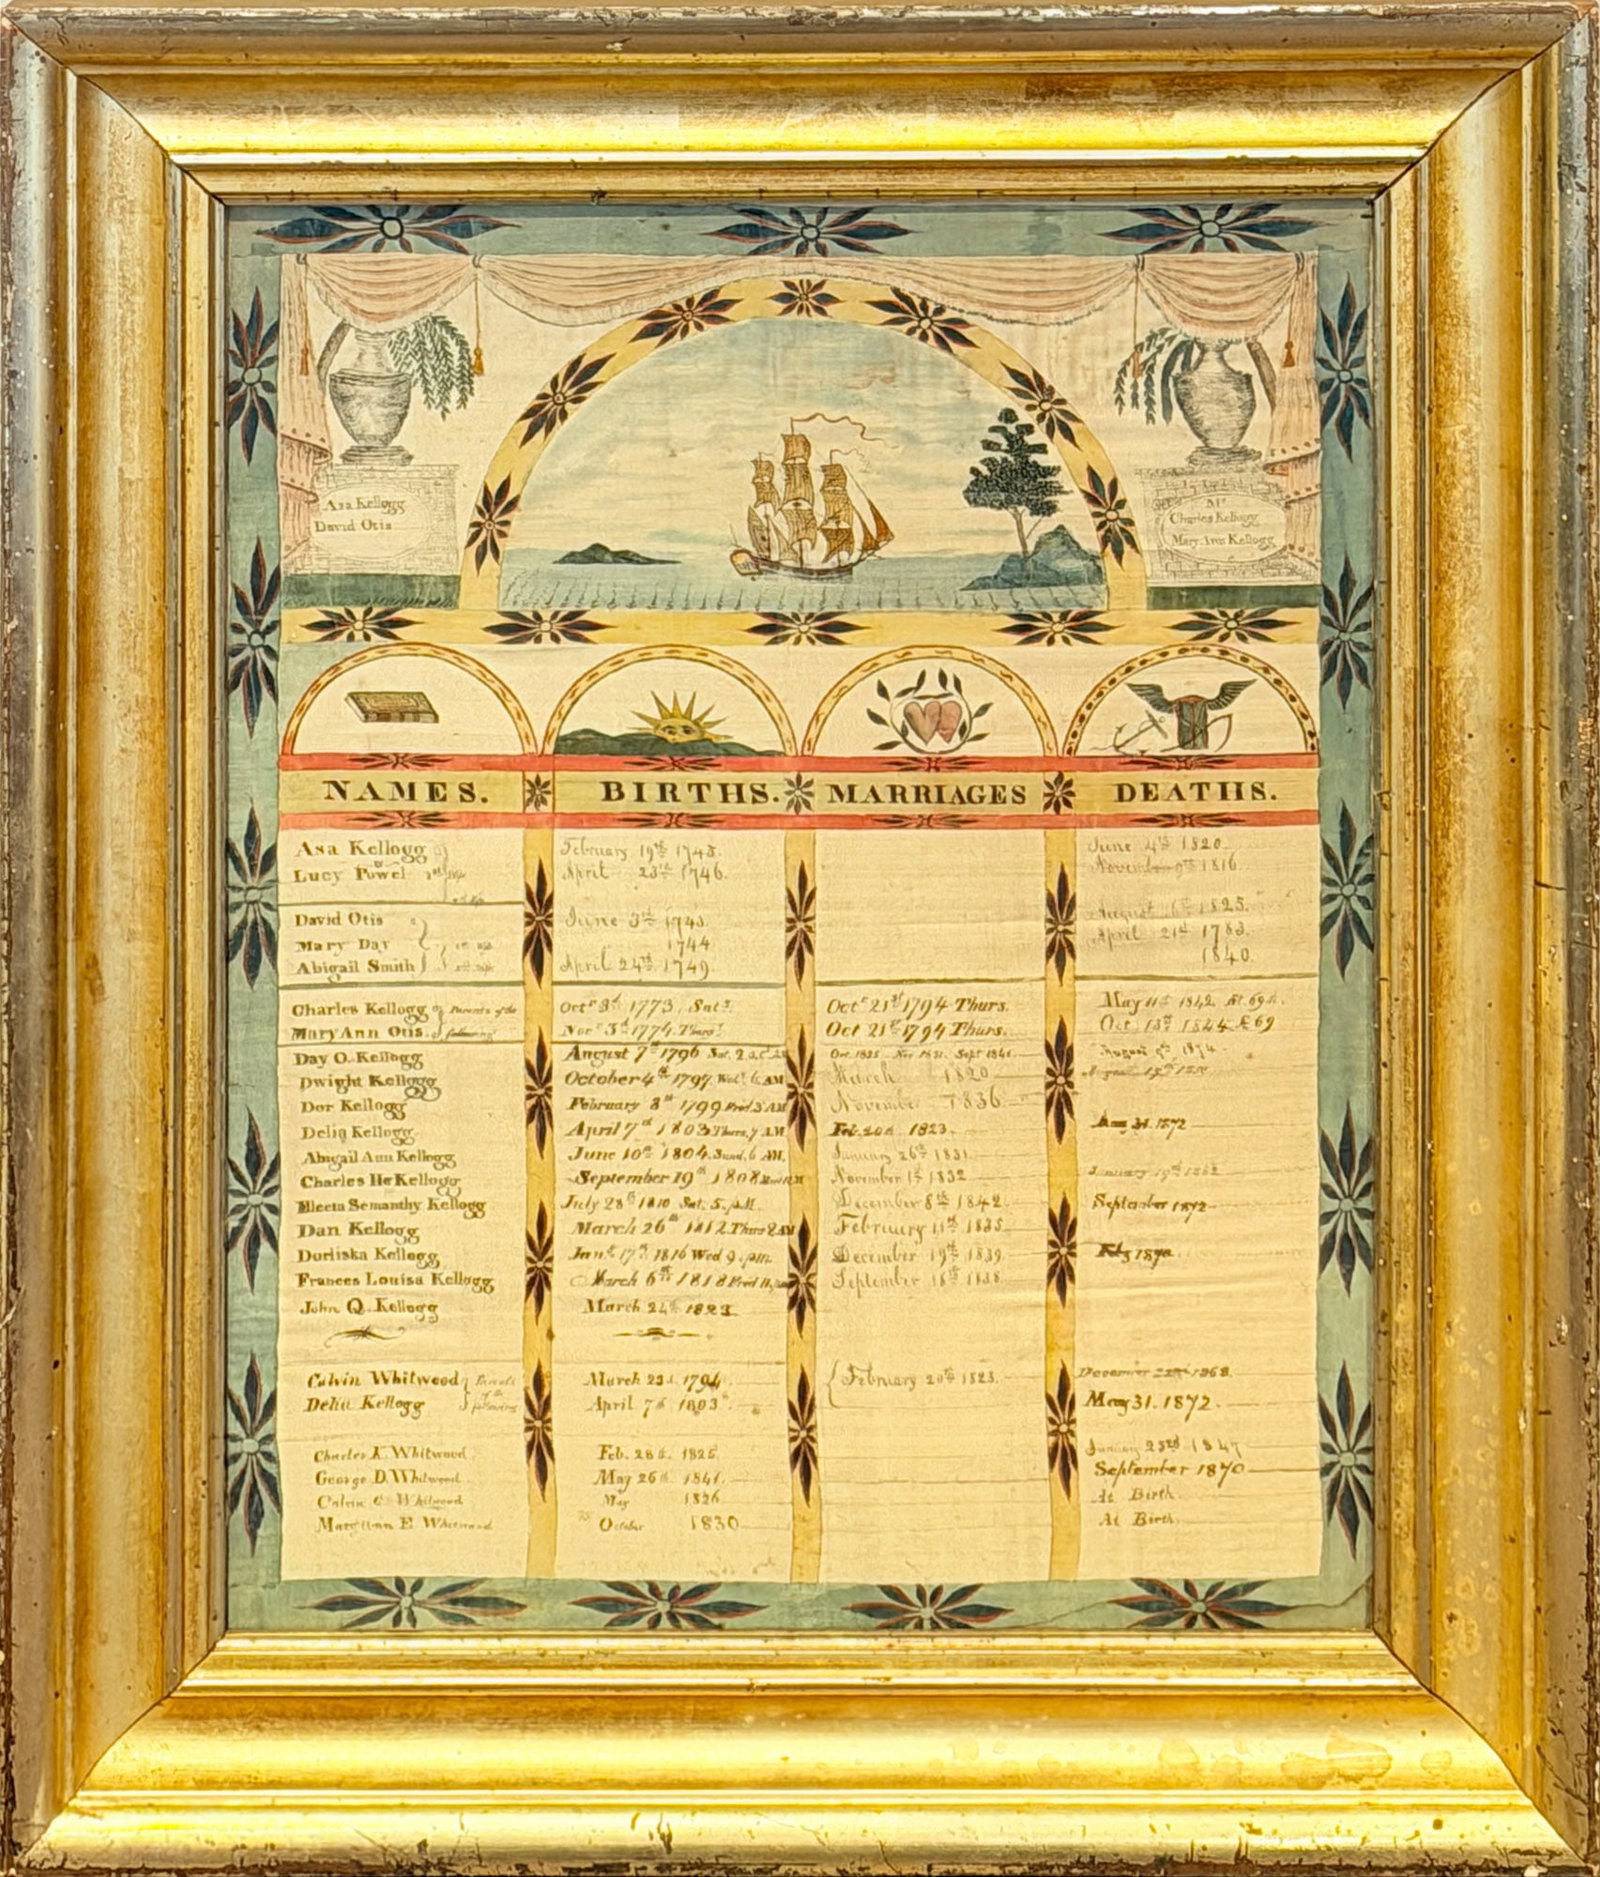 Asa Kellogg
David Otis
Mr
Charles Kellogg
Mary Ann Kellogg
NAMES. BIRTHS. MARRIAGES DEATHS.
Asa Kellogg February 19th 1745. June 4th 1820
Lucy Powel April 23rd 1746. November 9th 1816
David Otis June 3rd 1743. August 1825.
Mary Day 1744 April 21st 1783.
Abigail Smith April 24th 1749. 1840.
Charles Kellogg Parents of the Octr 3d 1773, Satr Octr 21st 1794 Thurs. May 11th 1842. Æt 69
Mary Ann Otis. following Novr 3d 1774. Thursr Oct 21st 1794 Thurs. Oct 1844 Æ 69
Day O. Kellogg August 7th 1796 Sat. Oct. 1825 Nov 1831. Sept 1841 August 1874
Dwight Kellogg October 4th 1797. Wed. 6. AM March 1820
Dor Kellogg February 8th 1799 Fred. 3 AM November 1836
Delia Kellogg. April 7th 1803 Thurs, 7 AM Feb. 20th 1823. May 31. 1872
Abigail Ann Kellogg June 10th 1804. Sund. 6 AM. January 26th 1831.
Charles H Kellogg September 19th 1808 November 1st 1832 January 19th
Electa Semanthy Kellogg July 28th 1810 Sat. 5. P.M. December 8th 1842. September 1872
Dan Kellogg March 26th 1812. Thurs 2 AM February 11th 1835
Dorliska Kellogg Jan. 17th 1816 Wed 9. pm. December 19th 1839.
Frances Louisa Kellogg March 6th 1818 Fred 11. September 18th 1838
John Q. Kellogg March 24th 1823
Calvin Whitwood Parents March 23d. 1794. February 20th 1823. December 1868.
Delia Kellogg of the following April 7th 1803. May 31. 1872.
Charles K Whitwood Feb. 28th. 1825. January 23rd 1847
George D. Whitwood May 26th 1841. September 1870
Calvin C Whitwood May 1826 At Birth.
Mary Ann E Whitwood October 1830 At Birth.